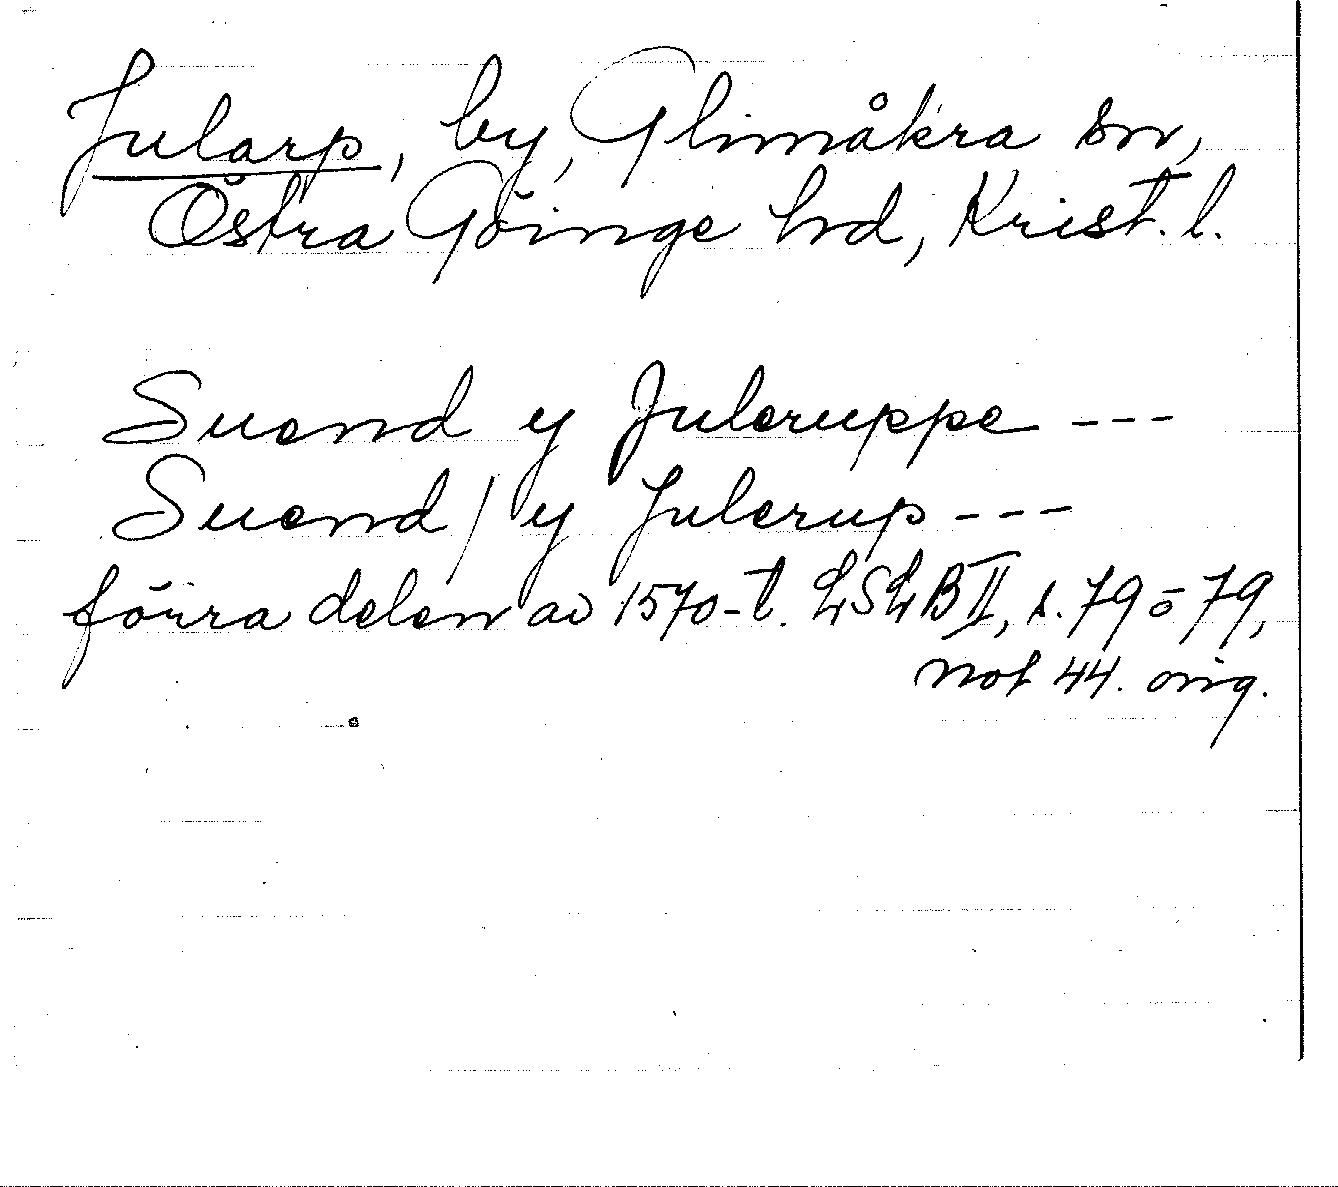 Jularp, by, Glimåkra sn,
Östra Göinge hd, Krist. l.
Suend y Juleruppe ---
Suend / y Julerup ---
förra delen av 1570-t. LSLB II, s. 79 o 79,
not 44. orig.